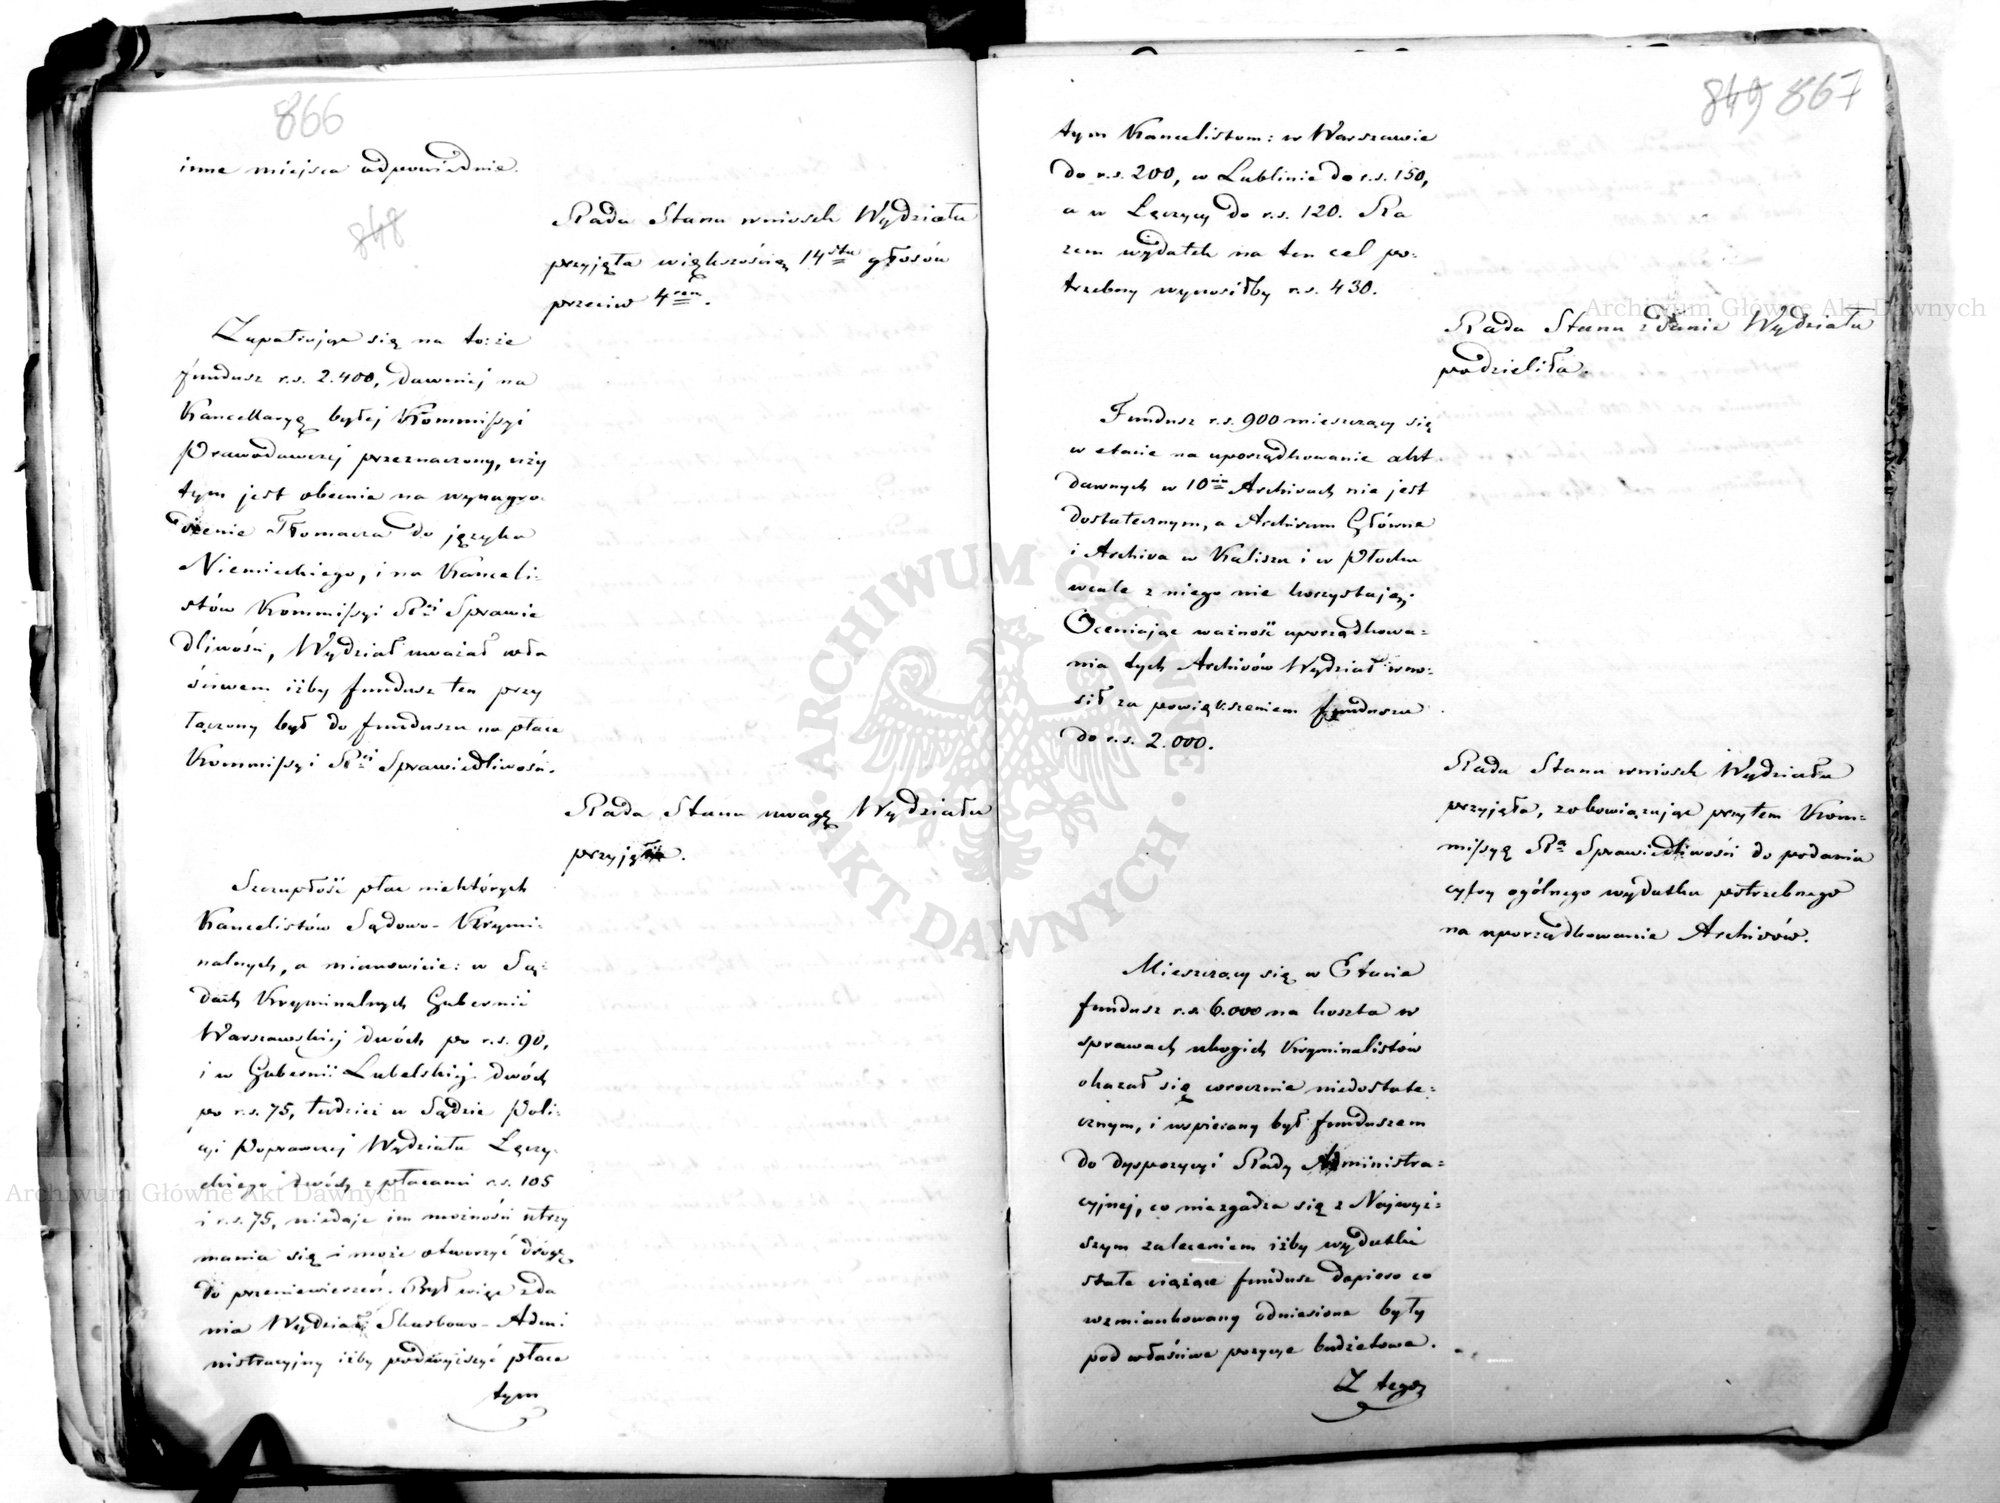 866
inne miejsca odpowiednie.
848
Rada Stanu wniosek Wydziału
przyjęła większością 14stu głosów
przeciw 4rem.
Zapatrując się na to: że
fundusz r.s. 2.400, dawniej na
Kancellaryą byłej Kommissyi
Prawodawczej przeznaczony, uży
tym jest obecnie na wynagro-
dzenie Tłomacza do języka
Niemieckiego, i na Kanceli-
stów Kommissyi Rii Sprawie
dliwości, Wydział uważał wła
ściwem iżby fundusz ten przy
łączony był do funduszu na płace
Kommissyi Rii Sprawiedliwości.
Rada Stanu uwagę Wydziału
przyjęła.
Szczupłość płac niektórych
Kancelistów Sądowo-Krymi-
nalnych, a mianowicie: w Są-
dach Kryminalnych Gubernii
Warszawskiej dwóch po r.s. 90,
i w Gubernii Lubelskiej dwóch
po r.s. 75, tudzież w Sądzie Poli-
cyi Poprawczej Wydziału Łęczy-
ckiego dwóch z płacami r.s. 105
i r.s. 75, niedaje im możności utrzy
mania się i może otworzyć drogę
do przeniewierzeń. Był więc zda
nia Wydział Skarbowo-Admi
nistracyjny iżby podwyższyć płace
tym
849 867
tym Kancelistom: w Warszawie
do r.s. 200, w Lublinie do r.s. 150,
a w Łęczycy do r.s. 120. Ra
zem wydatek na ten cel po-
trzebny wynosiłby r.s. 430.
Rada Stanu zdanie Wydziału
podzieliła.
Fundusz r.s. 900 mieszczący się
w etacie na uporządkowanie akt
dawnych w 10iu Archivach nie jest
dostatecznym, a Archivum Główne
i Archiva w Kaliszu i w Płocku
wcale z niego nie korzystają.
Oceniając ważność uporządkowa-
nia tych Archivów Wydział wno-
sił za powiększeniem funduszu
do r.s. 2.000.
Rada Stanu wniosek Wydziału
przyjęła, zobowiązując przytem Kom-
missyą Rą Sprawiedliwości do podania
cyfry ogólnego wydatku potrzebnego
na uporządkowanie Archivów.
Mieszczący się w Etacie
fundusz r.s. 6.000 na koszta w
sprawach ubogich Kryminalistów
okazał się corocznie niedostate-
cznym, i wspierany był funduszem
do dyspozycyi Rady Administra-
cyjnej, co niezgadza się z Najwyż-
szym zaleceniem iżby wydatki
stałe ciążące fundusz dopiero co
wzmiankowany odniesione były
pod właściwe pozycye budżetowe.
Z tego
Archiwum Główne Akt Dawnych
Archiwum Główne Akt Dawnych
ARCHIWUM GŁÓWNE
AKT DAWNYCH